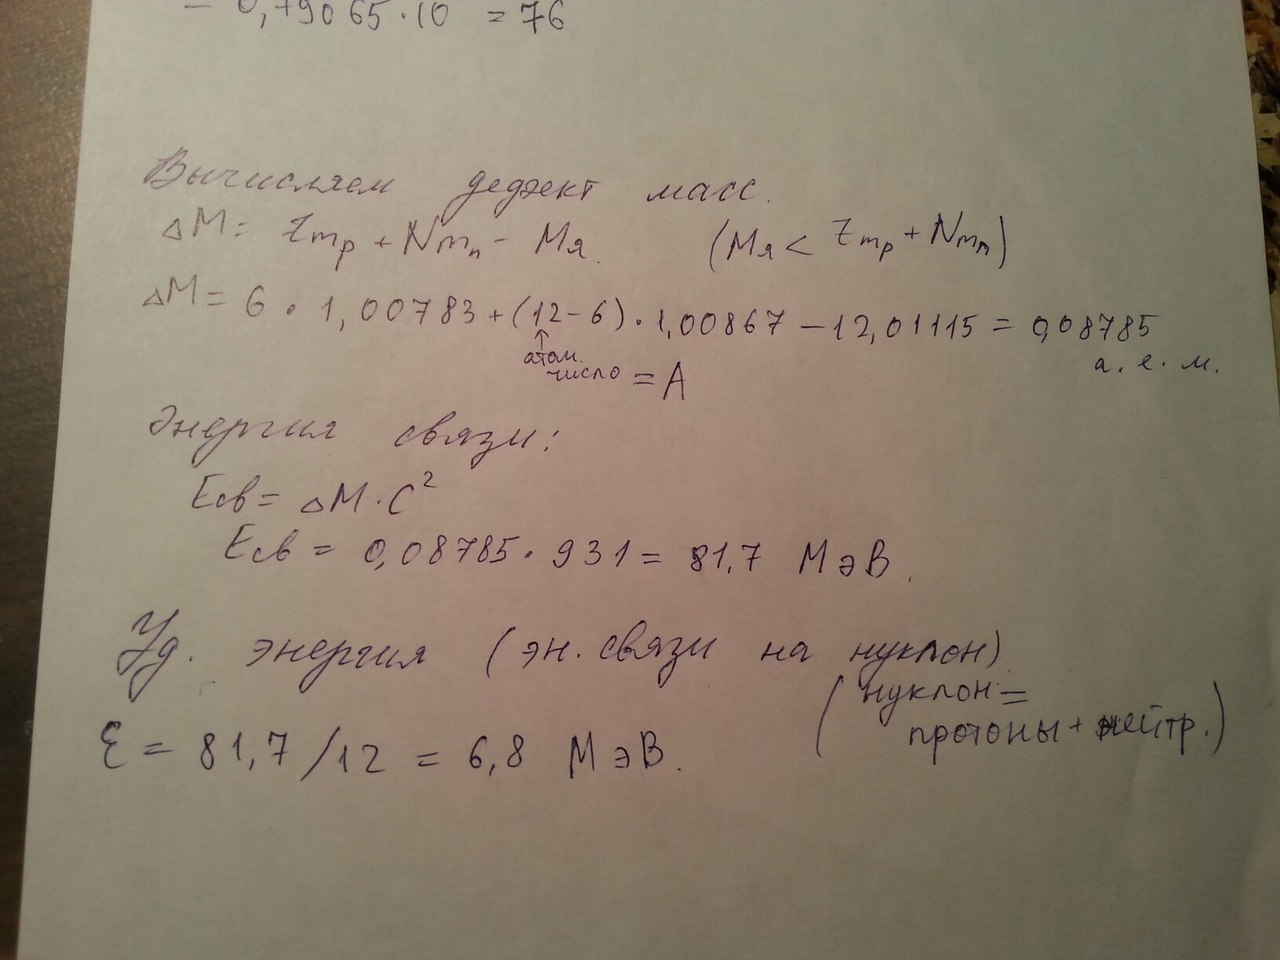 = 0,79065·10 = 76
Вычисляем дефект масс.
ΔM = Zmp + Nmn - Mя. (Mя < Zmp + Nmn)
ΔM = 6 · 1,00783 + (12-6) · 1,00867 - 12,01115 = 0,08785
а. е. м.
↑
атом.
число = A
Энергия связи:
Eсв = ΔM · C²
Eсв = 0,08785 · 931 = 81,7 МэВ.
Уд. энергия (эн. связи на нуклон)
(нуклон =
протоны + нейтр.)
ε = 81,7/12 = 6,8 МэВ.